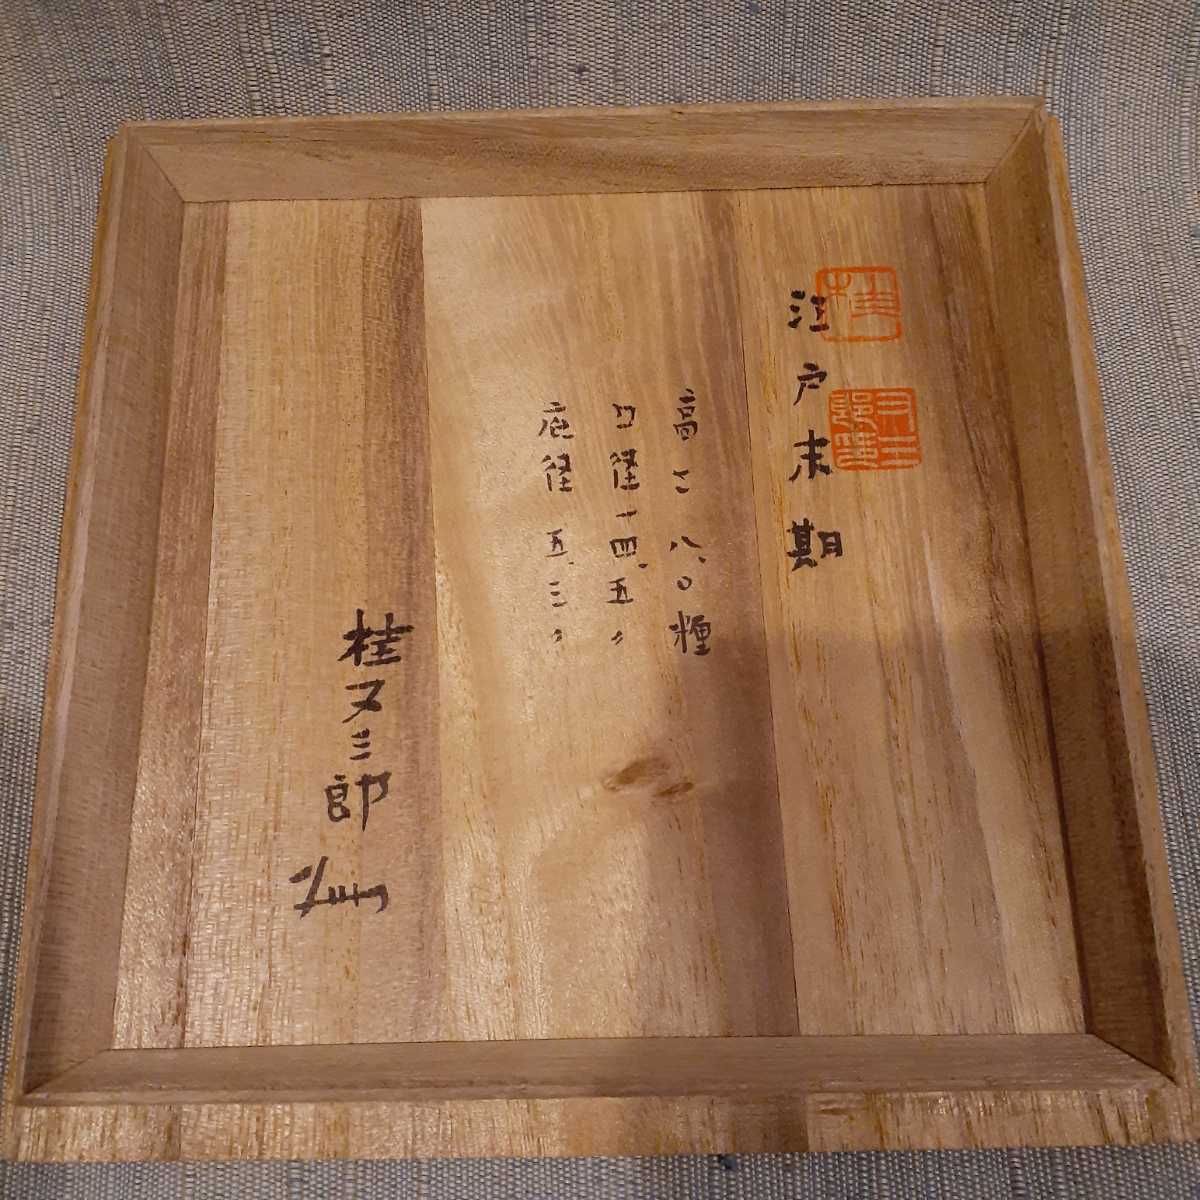 江戸末期
高さ八、〇糎
口径一四、五〃
底径五、三〃
桂又三郎